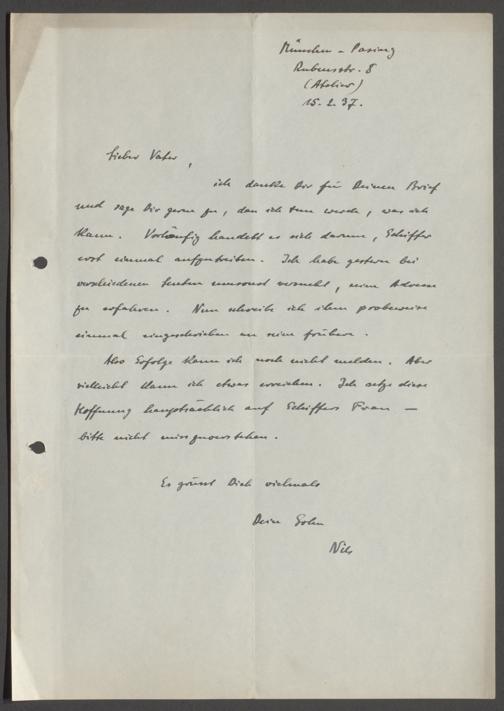 München-Pasing
Rubensstr. 8
(Atelier)
15. 2. 37.
Lieber Vater,
ich danke Dir für Deinen Brief
und sage Dir gerne zu, dass ich tun werde, was ich
kann. Vorläufig handelt es sich darum, Schiffer
erst einmal aufzutreiben. Ich habe gestern bei
verschiedenen Leuten umsonst versucht, seine Adresse
zu erfahren. Nun schreibe ich ihm probeweise
einmal eingeschrieben an seine frühere.
Also Erfolge kann ich noch nicht melden. Aber
vielleicht kann ich etwas erreichen. Ich setze diese
Hoffnung hauptsächlich auf Schiffers Frau —
bitte nicht misszuverstehen.
Es grüsst Dich vielmals
Dein Sohn
Nils